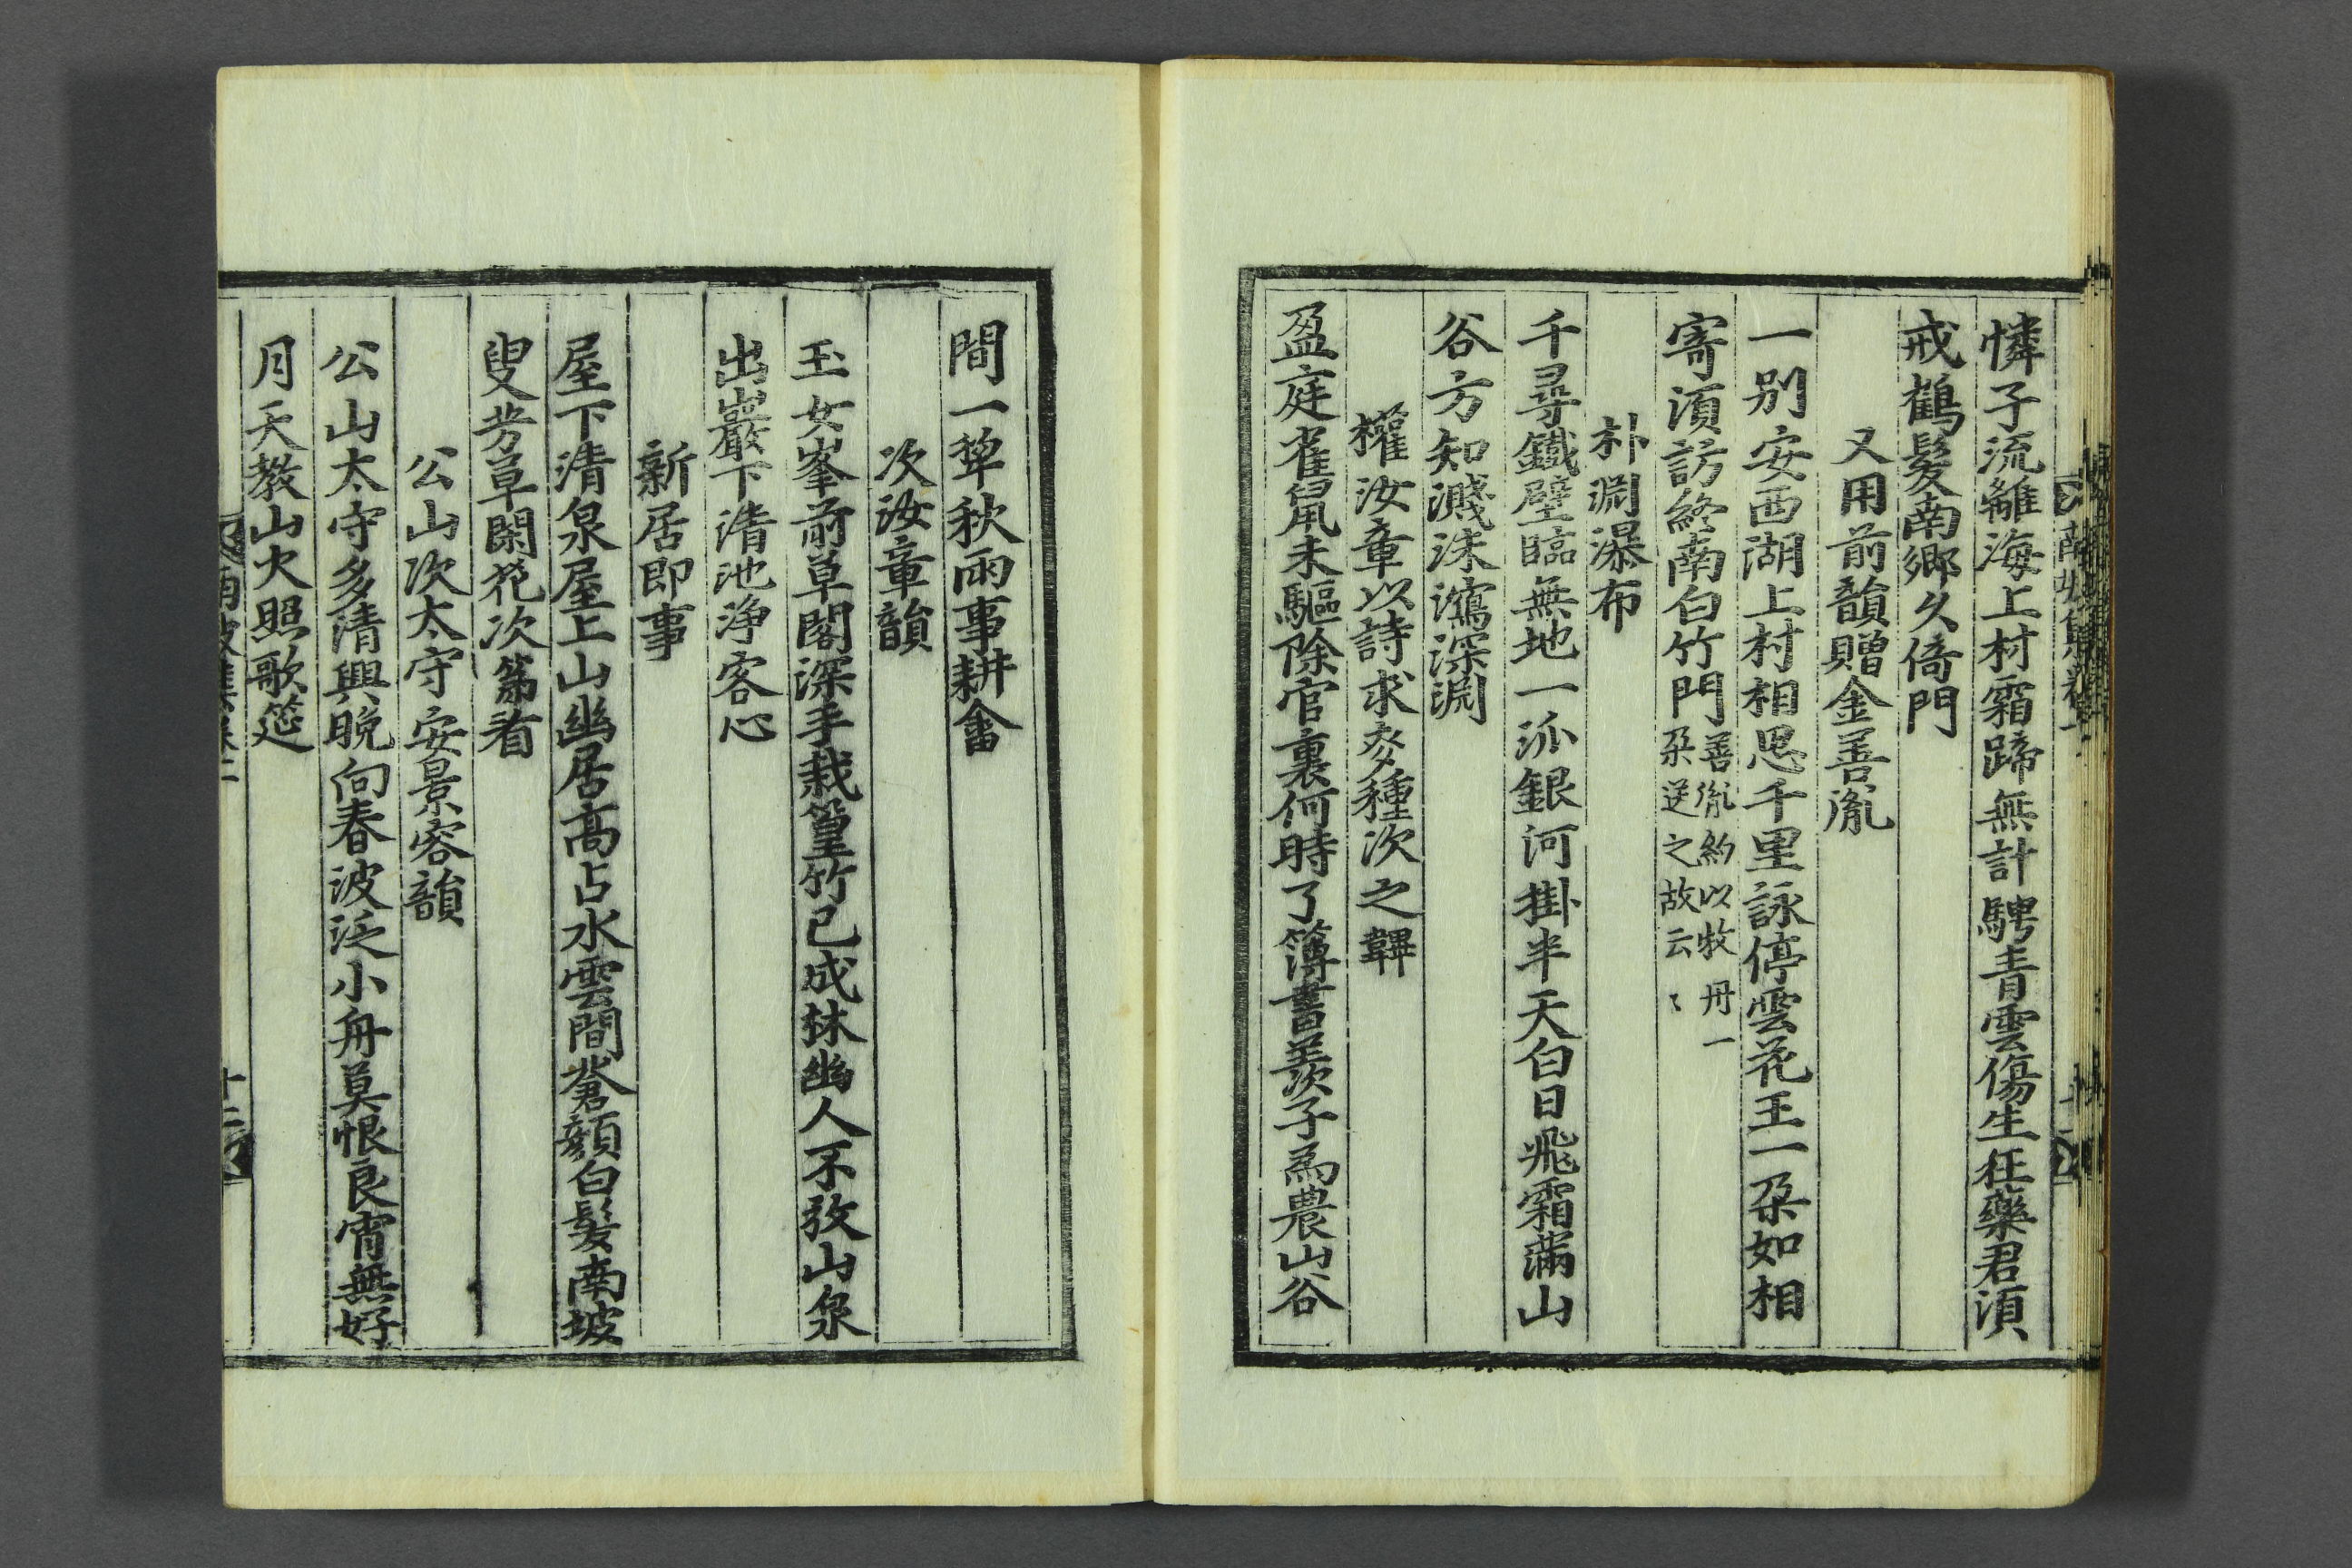 憐子流離海上村霜蹄無計騁青雲傷生狂藥君須
戒鶴髮南鄉久倚門
又用前韻贈金善胤
一別安西湖上村相思千里詠停雲花王一朶如相
寄須訪終南白竹門善胤約以牧丹一
朶送之故云〻
朴淵瀑布
千尋鐵壁臨無地一派銀河掛半天白日飛霜滿山
谷方知濺沫瀉深淵
權汝章以詩求麥種次之韠
盈庭雀鼠未驅除官裏何時了簿書羨子爲農山谷
間一犂秋雨事耕畬
次汝章韻
玉女峯前草閣深手栽篁竹已成林幽人不放山泉
出巖下淸池淨客心
新居即事
屋下清泉屋上山幽居高占水雲間蒼顔白髮南坡
叟芳草閑花次第看
公山次太守安景容韻
公山太守多淸興晩向春波泛小舟莫恨良宵無好
月天教山火照歌筵
南坡集卷二
十二